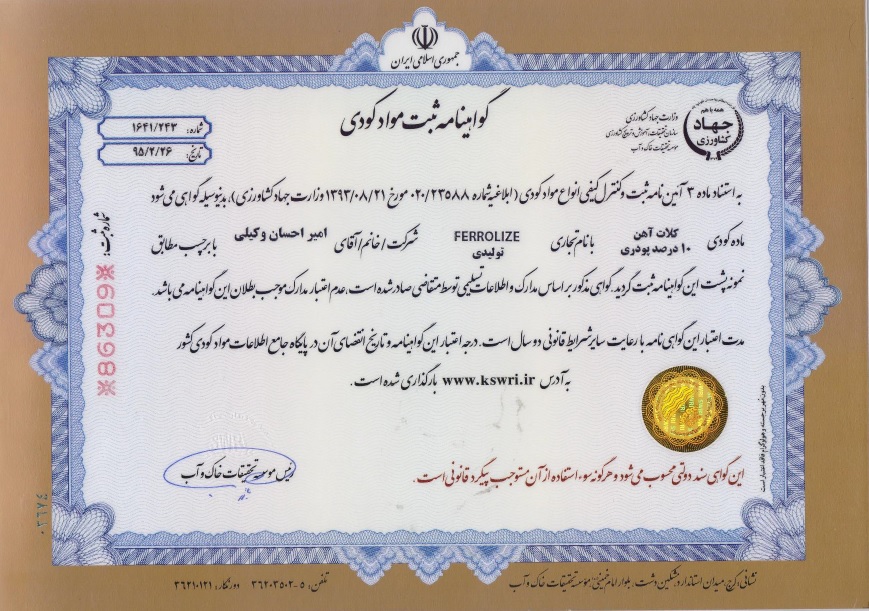 جمهوری اسلامی ایران
گواهینامه ثبت مواد کودی
همه با هم
جهاد
کشاورزی
وزارت جهاد کشاورزی
سازمان تحقیقات، آموزش و ترویج کشاورزی
موسسه تحقیقات خاک و آب
شماره: ۱۶۴۱/۲۴۳
تاریخ: ۹۵/۲/۲۶
به استناد ماده ۳ آئین نامه ثبت و کنترل کیفی انواع مواد کودی (ابلاغیه شماره ۰۲۰/۲۳۵۸۸ مورخ ۱۳۹۳/۰۸/۲۱ وزارت جهاد کشاورزی)، بدینوسیله گواهی می شود
ماده کودی کلات آهن ۱۰ درصد پودری با نام تجاری FERROLIZE تولیدی شرکت/خانم/آقای امیر احسان وکیلی با برچسب مطابق
نمونه پشت این گواهینامه ثبت گردید. گواهی مذکور بر اساس مدارک و اطلاعات تسلیمی توسط متقاضی صادر شده است، عدم اعتبار مدارک موجب بطلان این گواهینامه می باشد.
مدت اعتبار این گواهی نامه با رعایت سایر شرایط قانونی دو سال است. درجه اعتبار این گواهینامه و تاریخ انقضای آن در پایگاه جامع اطلاعات مواد کودی کشور
به آدرس www.kswri.ir بارگذاری شده است.
شماره ثبت:
※86309※
بدون مهر برجسته و هولوگرام فاقد اعتبار است
این گواهی سند دولتی محسوب می شود و هرگونه سوء استفاده از آن مستوجب پیگرد قانونی است.
رئیس موسسه تحقیقات خاک و آب
۰۲۶۷۴
نشانی: کرج، میدان استاندارد، مشکین دشت، بلوار امام خمینی، موسسه تحقیقات خاک و آب
تلفن: ۵-۳۶۲۰۳۵۰۲ دورنگار: ۳۶۲۱۰۱۲۱